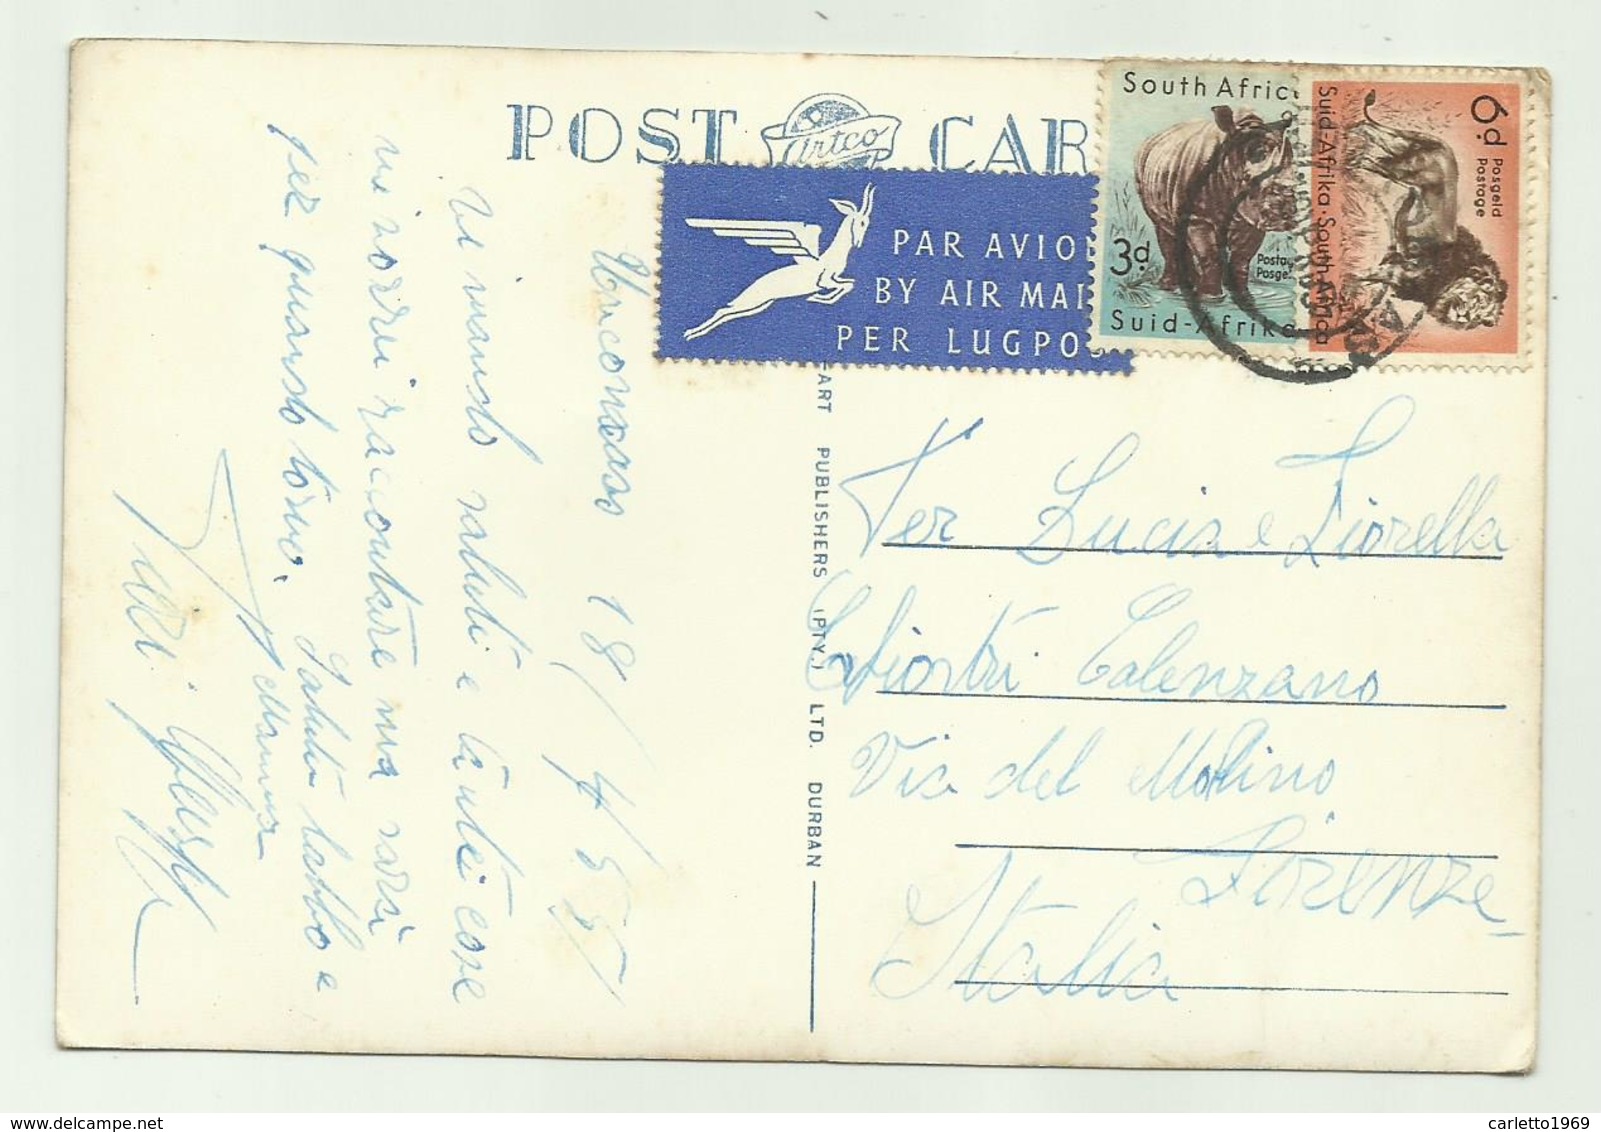 POST CAR
Artco
PAR AVIO
BY AIR MAI
PER LUGPOS
South Afric
3d
Posta
Posge
Suid-Afrika
6d
Posgeld
Postage
Suid-Afrika · South Africa
ART PUBLISHERS (PTY.) LTD. DURBAN
18/4/55
Vi mando saluti e tante cose
vi vorrei raccontare ma sarà
per quando torno. Saluti babbo e
Mamma
Per Lucia e Fiorella
Calenzano
Via del Molino
Firenze
Italia
carletto1969